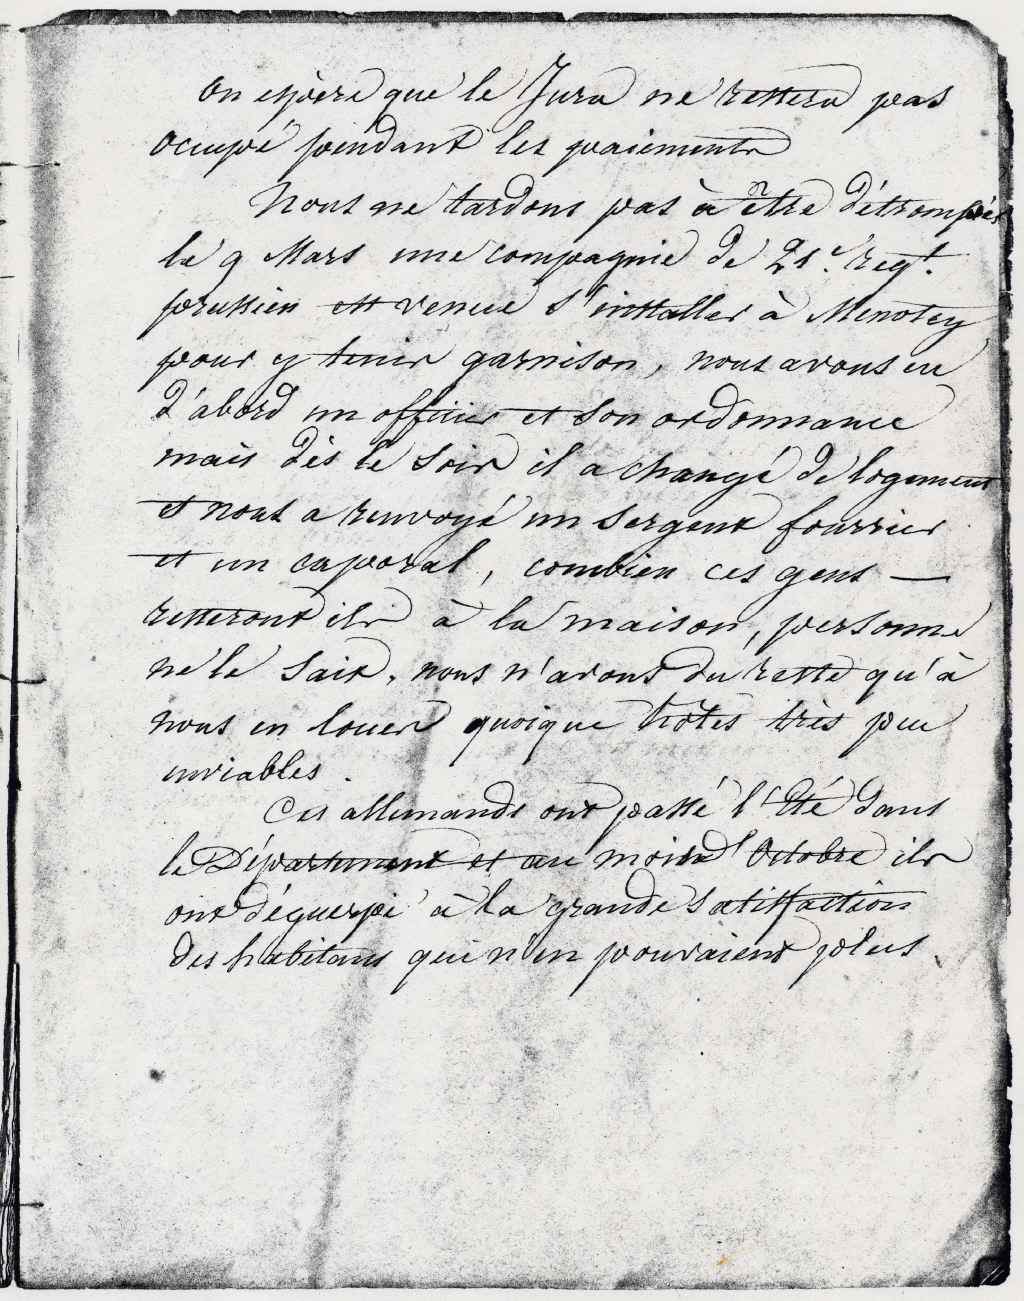 On espère que le Jura ne restera pas
occupé pendant les paiements
Nous ne tardons pas à en être détrompés
le 9 Mars une compagnie de 21e regt.
prussien est venue s'installer à Menotey
pour y tenir garnison, nous avons eu
d'abord un officier et son ordonnance
mais dès le soir il a changé de logement
et nous a renvoyé un sergent fourrier
et un caporal, combien ces gens —
resteront ils à la maison, personne
ne le sait, nous n'avons du reste qu'à
nous en louer quoique hôtes très peu
enviables.
Ces allemands ont passé l'Été dans
le Département et au mois d'Octobre ils
ont déguerpi à la grande satisfaction
des habitans qui n'en pouvaient plus.